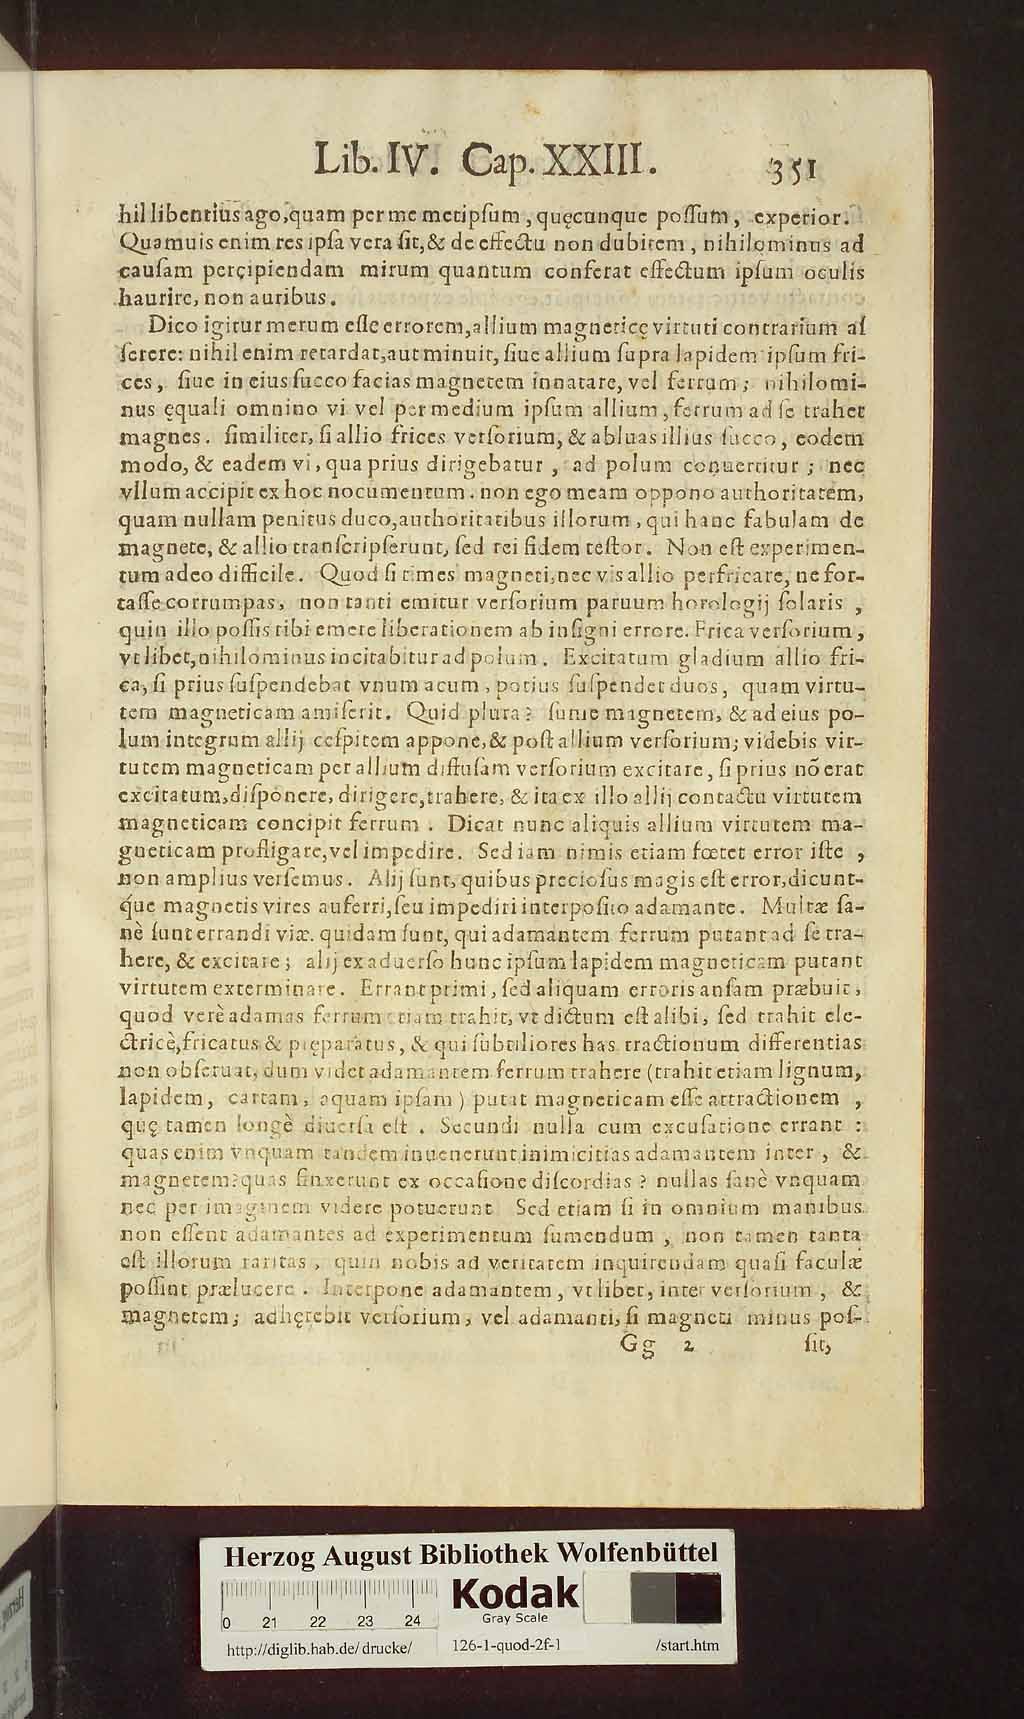 Lib. IV. Cap. XXIII. 351
hil libentius ago, quam per me metipſum, quęcunque poſſum, experior.
Quamuis enim res ipſa vera ſit, & de effectu non dubitem, nihilominus ad
cauſam perçipiendam mirum quantum conferat effectum ipſum oculis
haurire, non auribus.
Dico igitur merum eſſe errorem, allium magneticę virtuti contrarium aſ
ſerere: nihil enim retardat, aut minuit, ſiue allium ſupra lapidem ipſum fri-
ces, ſiue in eius ſucco facias magnetem innatare, vel ferrum; nihilomi-
nus ęquali omnino vi vel per medium ipſum allium, ferrum ad ſe trahet
magnes. ſimiliter, ſi allio frices verſorium, & abluas illius ſucco, eodem
modo, & eadem vi, qua prius dirigebatur, ad polum conuertitur; nec
vllum accipit ex hoc nocumentum. non ego meam oppono authoritatem,
quam nullam penitus duco, authoritatibus illorum, qui hanc fabulam de
magnete, & allio tranſcripſerunt, ſed rei fidem teſtor. Non eſt experimen-
tum adeo difficile. Quod ſi times magneti, nec vis allio perfricare, ne for-
taſſe corrumpas, non tanti emitur verſorium paruum horologij ſolaris,
quin illo poſſis tibi emere liberationem ab inſigni errore. Frica verſorium,
vt libet, nihilominus incitabitur ad polum. Excitatum gladium allio fri-
ca, ſi prius ſuſpendebat vnum acum, potius ſuſpendet duos, quam virtu-
tem magneticam amiſerit. Quid plura? ſume magnetem, & ad eius po-
lum integrum allij ceſpitem appone, & poſt allium verſorium; videbis vir-
tutem magneticam per allium diffuſam verſorium excitare, ſi prius nõ erat
excitatum, diſponere, dirigere, trahere, & ita ex illo allij contactu virtutem
magneticam concipit ferrum. Dicat nunc aliquis allium virtutem ma-
gneticam profligare, vel impedire. Sed iam nimis etiam fœtet error iſte,
non amplius verſemus. Alij ſunt, quibus precioſus magis eſt error, dicunt-
que magnetis vires auferri, ſeu impediri interpoſito adamante. Multæ ſa-
nè ſunt errandi viæ. quidam ſunt, qui adamantem ferrum putant ad ſe tra-
here, & excitare; alij ex aduerſo hunc ipſum lapidem magneticam putant
virtutem exterminare. Errant primi, ſed aliquam erroris anſam præbuit,
quod verè adamas ferrum etiam trahit, vt dictum eſt alibi, ſed trahit ele-
ctricè, fricatus & pręparatus, & qui ſubtiliores has tractionum differentias
non obſeruat, dum videt adamantem ferrum trahere (trahit etiam lignum,
lapidem, cartam, aquam ipſam) putat magneticam eſſe attractionem,
quę tamen longè diuerſa eſt. Secundi nulla cum excuſatione errant:
quas enim vnquam tandem inuenerunt inimicitias adamantem inter, &
magnetem? quas finxerunt ex occaſione diſcordias? nullas ſanè vnquam
nec per imaginem videre potuerunt. Sed etiam ſi in omnium manibus
non eſſent adamantes ad experimentum ſumendum, non tamen tanta
eſt illorum raritas, quin nobis ad veritatem inquirendam quaſi faculæ
poſſint prælucere. Interpone adamantem, vt libet, inter verſorium, &
magnetem; adhęrebit verſorium, vel adamanti, ſi magneti minus poſ-
Gg 2 ſit,
Herzog August Bibliothek Wolfenbüttel
Kodak
Gray Scale
0 21 22 23 24
http://diglib.hab.de/drucke/ 126-1-quod-2f-1 /start.htm